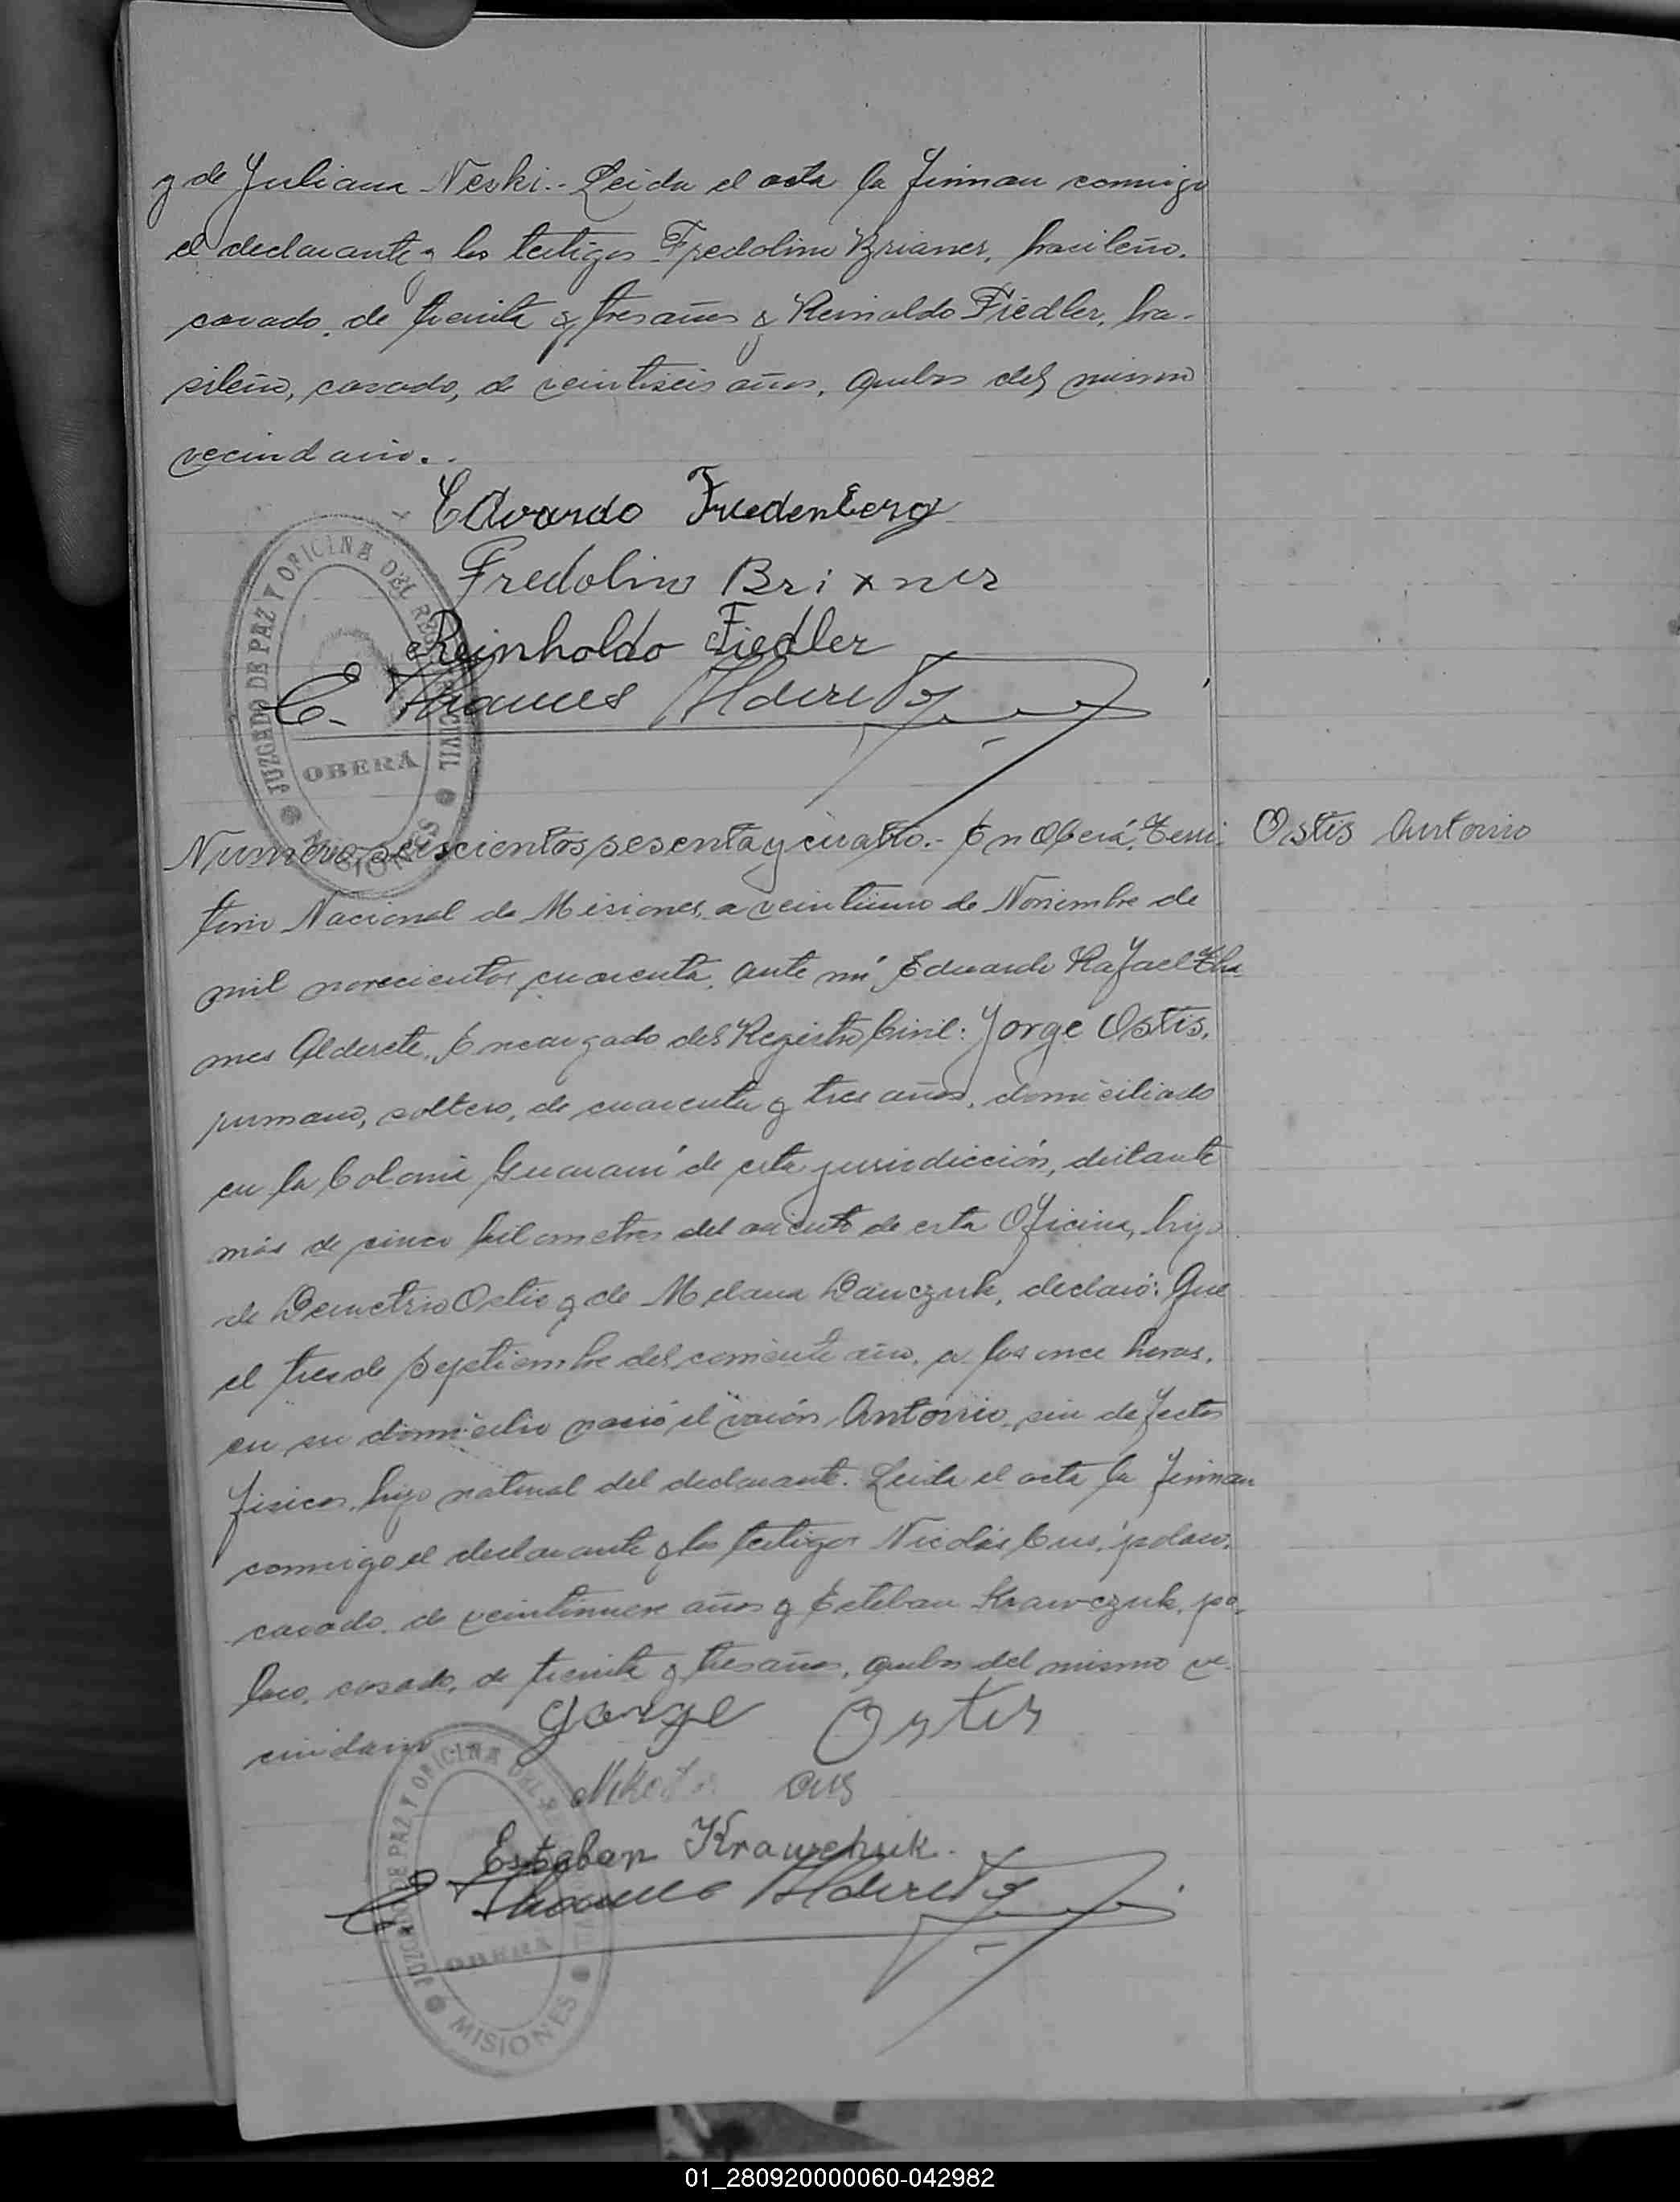 y de Juliana Neski.- Leida el acta la firman conmigo
el declarante y los testigos Fredolino Brixner, brasileño,
casado, de treinta y tres años y Reinaldo Fiedler, bra-
sileño, casado, de veintiseis años, ambos del mismo
vecindario..
Edvardo Fredenberg
Fredolino Brixner
Reinholdo Fiedler
E. Thames Alderete
JUZGADO DE PAZ Y OFICINA DEL REGISTRO CIVIL
OBERA
MISIONES
Numero seiscientos sesenta y cuatro.- En Oberá, Terri-
Ostis Antonio
torio Nacional de Misiones, a veintiuno de Noviembre de
mil novecientos cuarenta, ante mí Eduardo Rafael Tha-
mes Alderete, Encargado del Registro Civil: Jorge Ostis,
rumano, soltero, de cuarenta y tres años, domiciliado
en la Colonia Guaraní de esta jurisdicción, distante
más de cinco kilometros del asiento de esta Oficina, hijo
de Demetrio Ostis y de Melana Danczuk, declaró: Que
el tres de Septiembre del corriente año, a las once horas,
en su domicilio nació el varón Antonio, sin defectos
fisicos, hijo natural del declarante. Leida el acta la firman
conmigo el declarante y los testigos Nicolás Cus, polaco,
casado, de veintinueve años y Esteban Krawczuk, po-
laco, casado, de treinta y tres años, ambos del mismo ve-
cindario
Jorge Ostis
cus
Esteban Krawchuk.
E. Thames Alderete
JUZGADO DE PAZ Y OFICINA DEL
OBERA
MISIONES
01_280920000060-042982